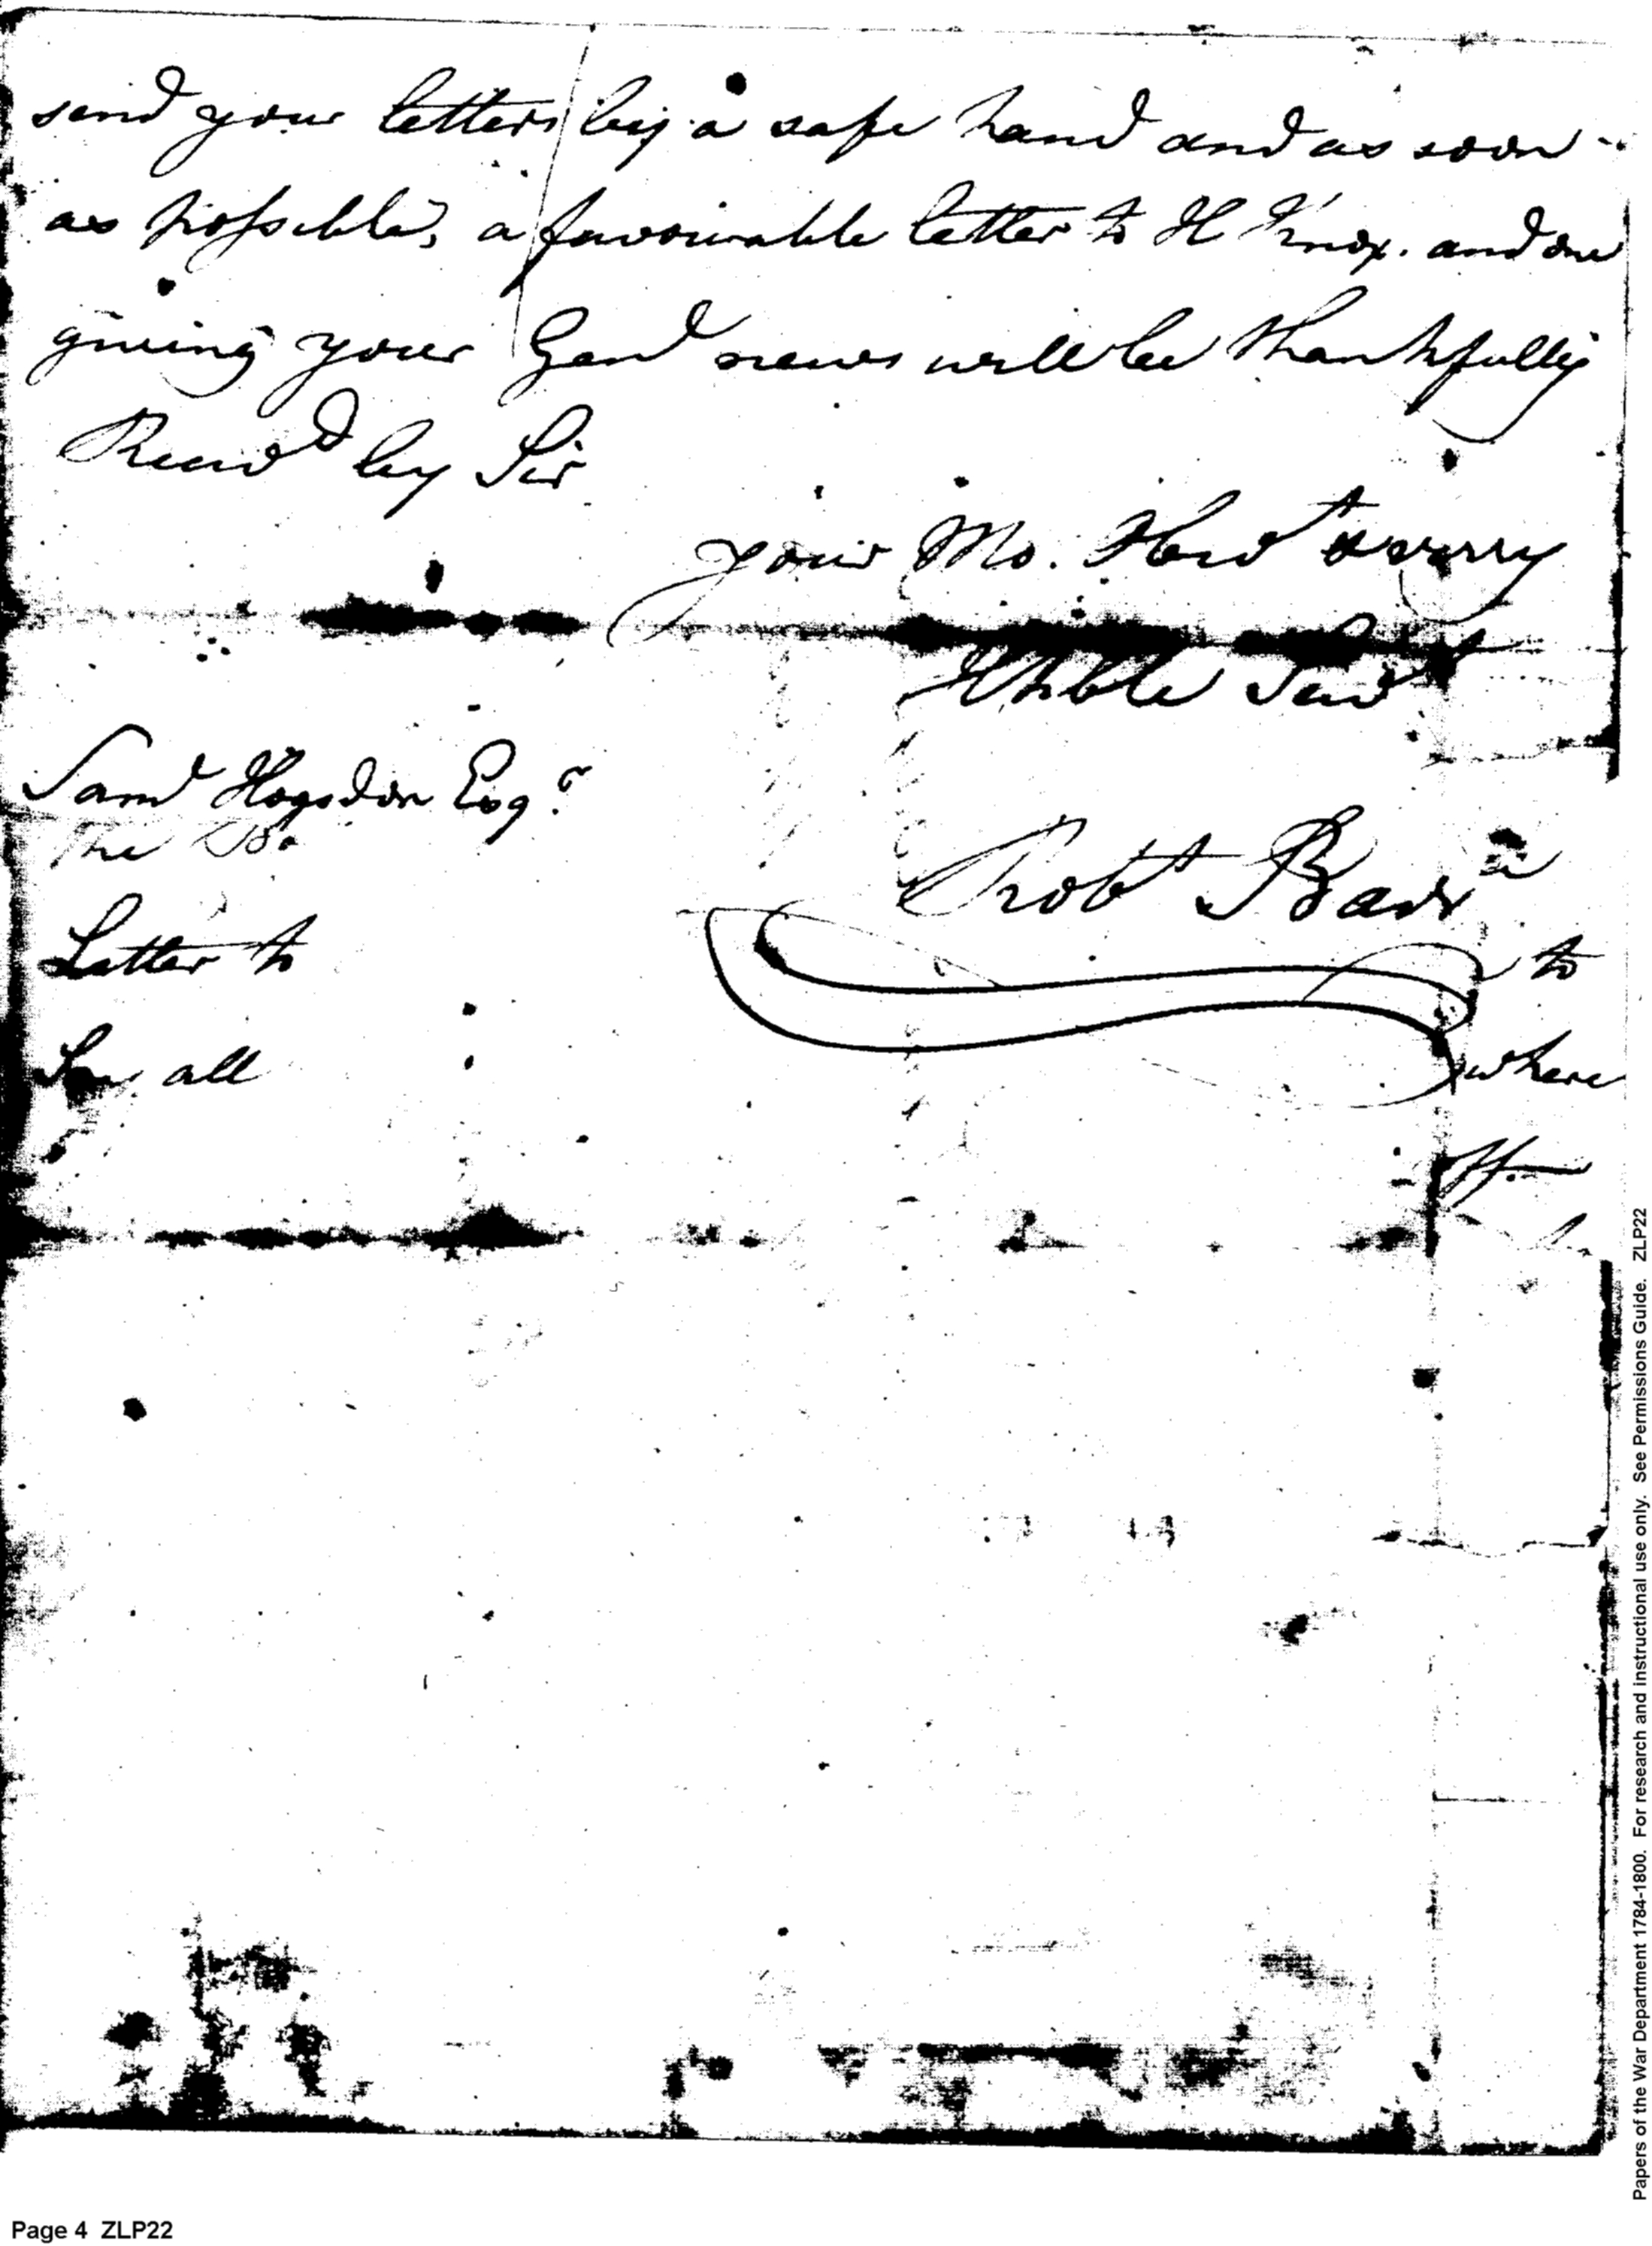 send your letters by a safe hand and as soon
as possible, a favourable letter to H Knox. and one
giving your Genl news will be thankfully
Recevd by Sir
your Mo. Obdt & very
Hhble Servt
Saml Hogsdon Esqr
The
Robt
Letter to
to
See all
where
Papers of the War Department 1784-1800. For research and instructional use only. See Permissions Guide. ZLP22
Page 4 ZLP22